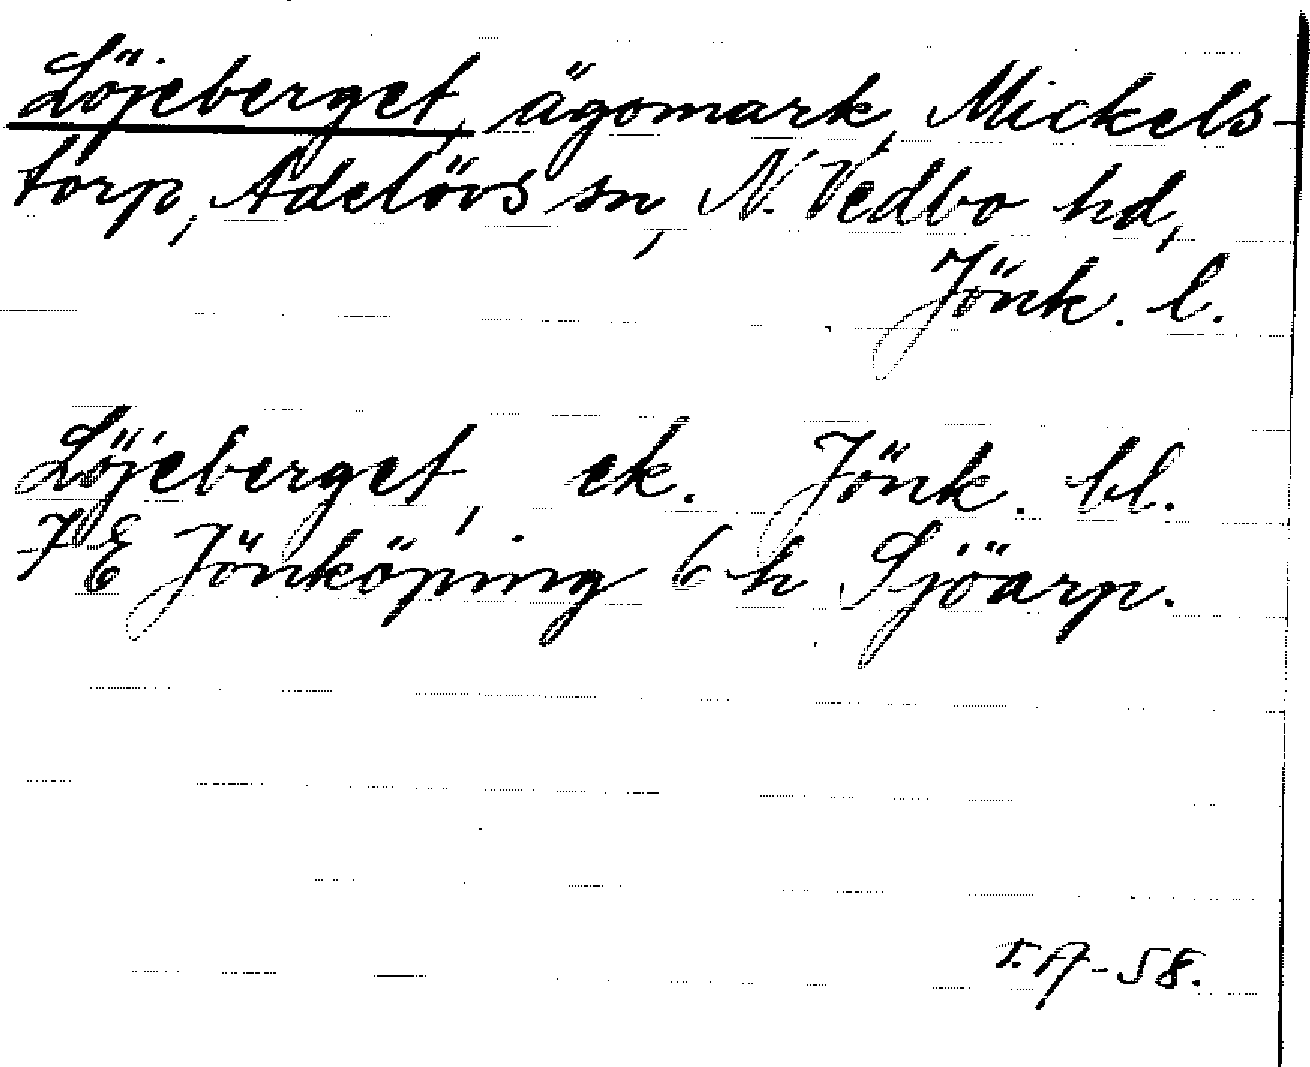 Löjeberget, ägomark, Mickels-
torp, Adelövs sn, N. Vedbo hd,
Jönk. l.
Löjeberget, ek. Jönk. bl.
7 E Jönköping 6 h Sjöarp.
-58.